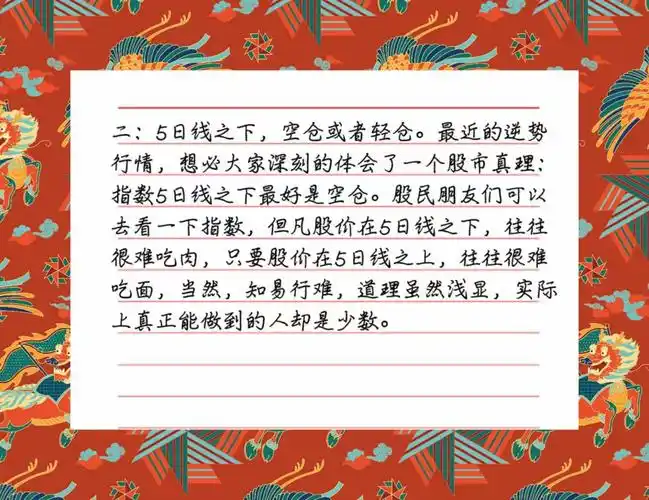 二：5日线之下，空仓或者轻仓。最近的逆势
行情，想必大家深刻的体会了一个股市真理：
指数5日线之下最好是空仓。股民朋友们可以
去看一下指数，但凡股价在5日线之下，往往
很难吃肉，只要股价在5日线之上，往往很难
吃面，当然，知易行难，道理虽然浅显，实际
上真正能做到的人却是少数。